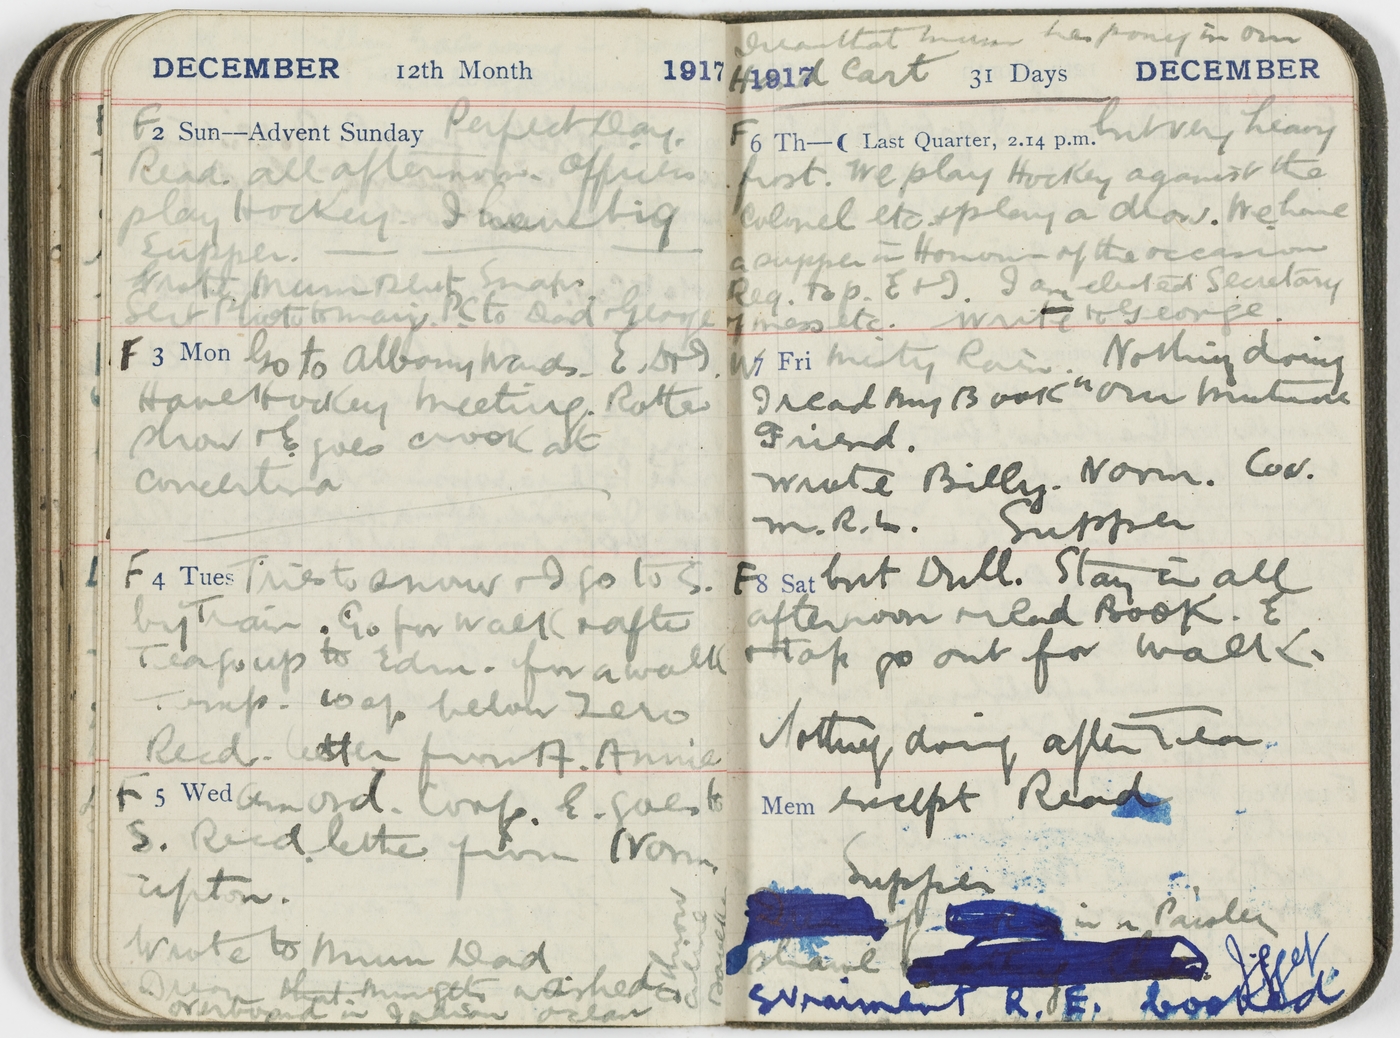 DECEMBER 12th Month 1917
F 2 Sun—Advent Sunday Perfect Day.
Read all afternoon. Officers
play Hockey. I have big
Supper.
Wrote Mum sent Snaps.
Sent Photo to Mary. PC to Dad & George
F 3 Mon Go to Albany Wards. E. D & I.
Have Hockey Meeting. Rotten
show & E goes crook at
Concertina
F 4 Tues Tries to snow & I go to S.
by Train. Go for walk & after
Tea go up to Edm. for a walk
Temp. below Zero
Recd. letter from A. Annie
F 5 Wed Corp. E. goes to
S. Recd. letter from Norm
Upton.
Wrote to Mum Dad
Dream that washed
overboard in Indian ocean
1917 31 Days DECEMBER
Dream that Mum has pony in our
Hand Cart
F 6 Th—☾ Last Quarter, 2.14 p.m. but very heavy
frost. We play Hockey against the
Colonel etc. & play a draw. We have
a supper in Honour of the occasion
Reg. Tap. E & I. I am elected Secretary
of mess etc. Write to George.
W 7 Fri Misty Rain. Nothing doing
I read my Book "Our Mutual
Friend.
Wrote Billy. Norm. Cov.
M. R. L. Supper
F 8 Sat but Dull. Stay in all
afternoon & read Book. E
& Tap go out for walk.
Nothing doing after Tea
Mem except Read
Supper
in a Paisley
shawl
Jigger
R. E. booked